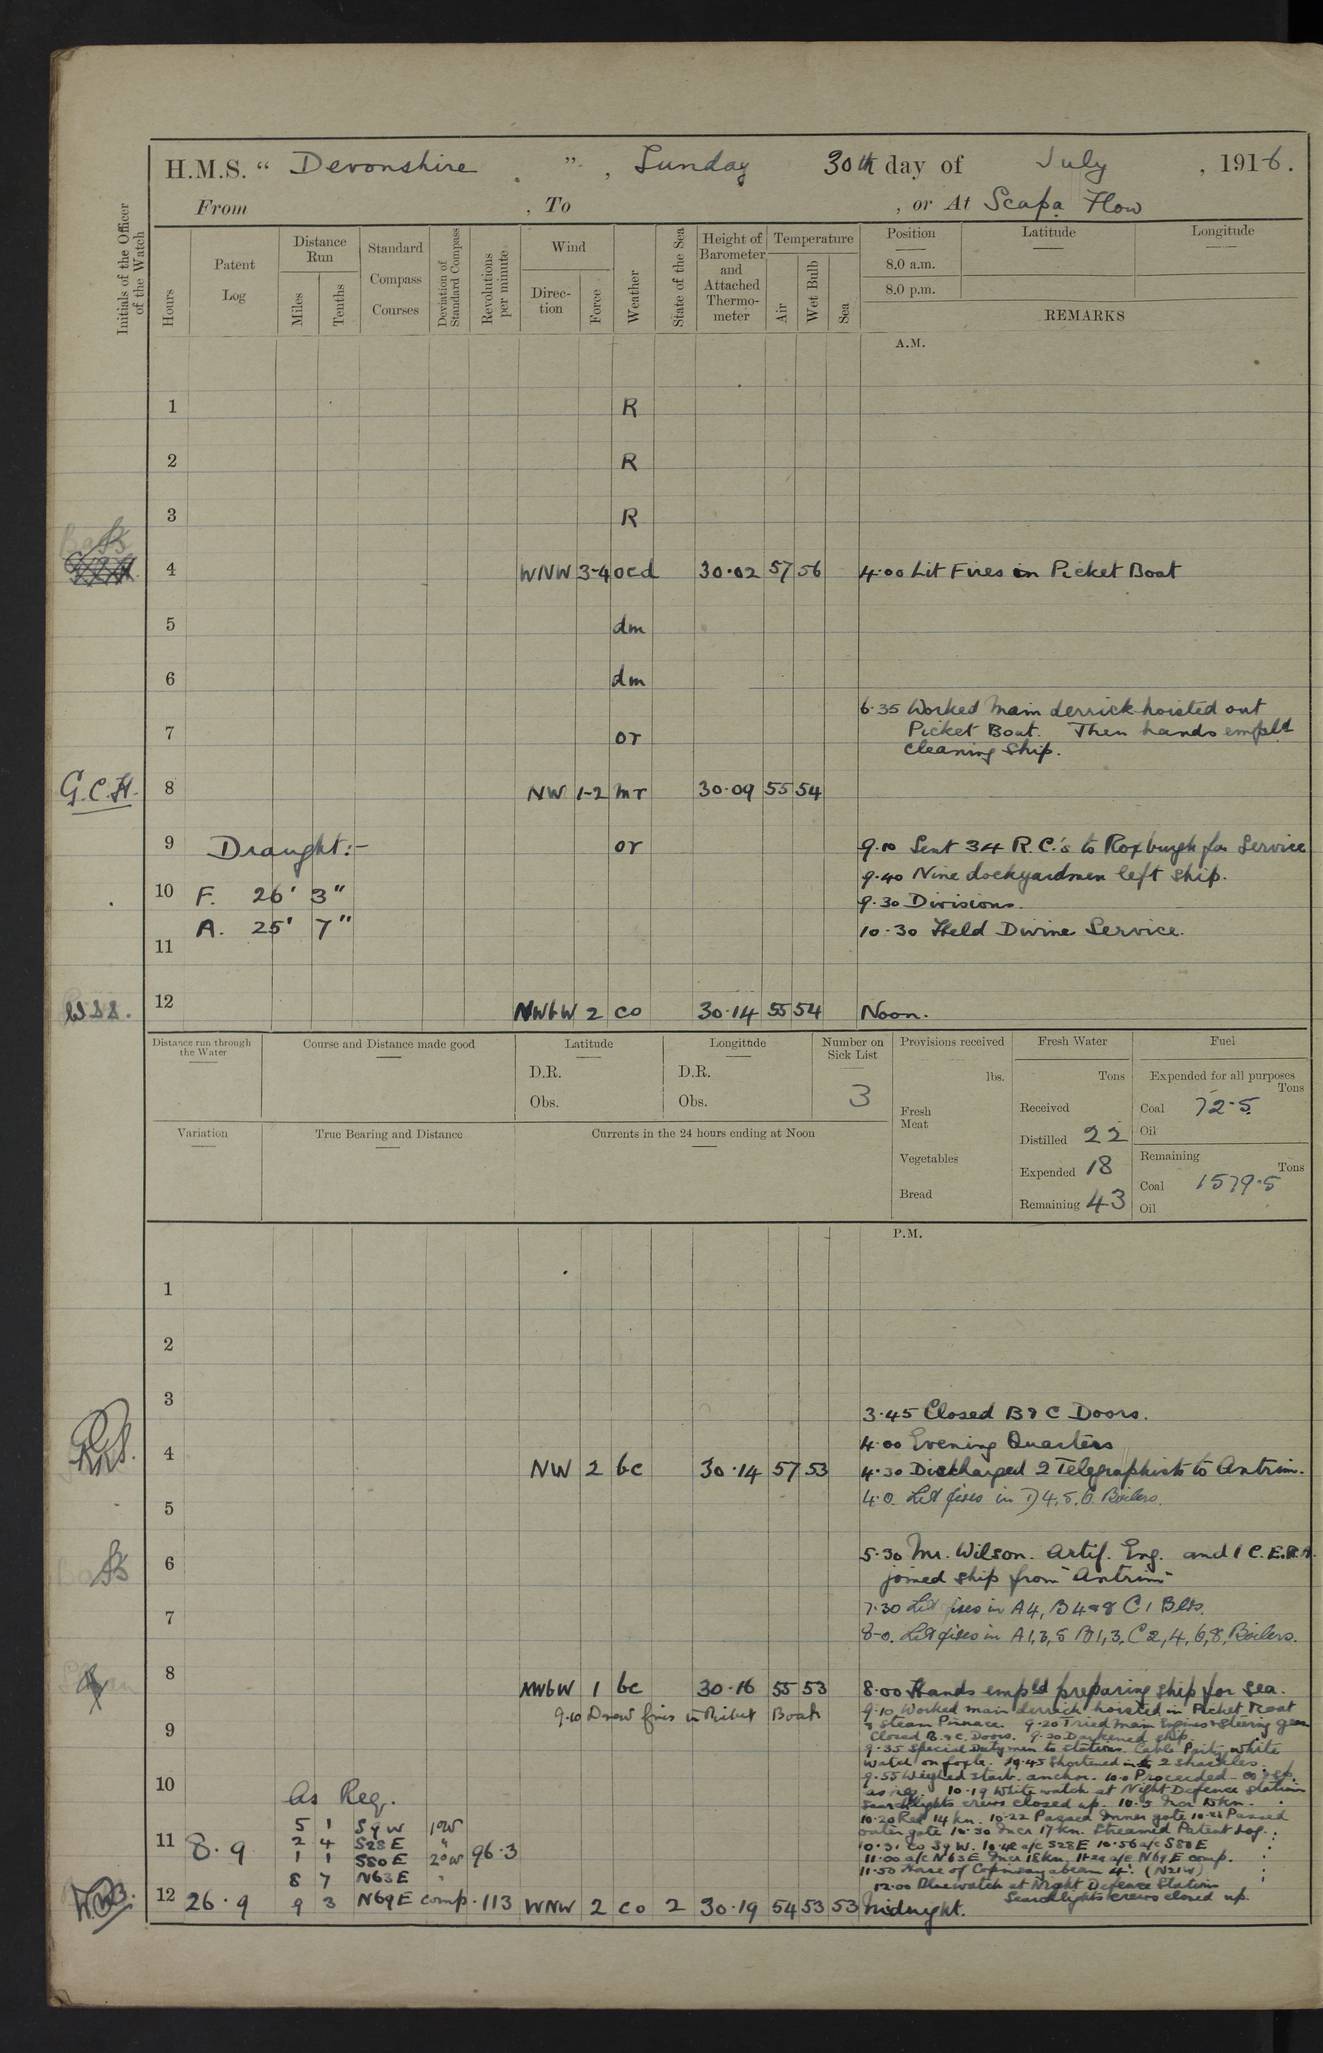 H.M.S. " Devonshire ", Sunday 30th day of July, 1916.
From , To , or At Scapa Flow
Initials of the Officer of the Watch
Hours
Patent Log
Distance Run
Miles
Tenths
Standard Compass Courses
Deviation of Standard Compass
Revolutions per minute
Wind
Direc-tion
Force
Weather
State of the Sea
Height of Barometer and Attached Thermo-meter
Temperature
Air
Wet Bulb
Sea
Position
8.0 a.m.
8.0 p.m.
Latitude
Longitude
REMARKS
A.M.
1 R
2 R
3 R
4 WNW 3-4 ocd 30·02 57 56 4·00 Lit Fires in Picket Boat
5 dm
6 dm
6·35 Worked Main derrick hoisted out
7 or Picket Boat. Then hands empld
cleaning Ship.
G.C.H. 8 NW 1-2 mr 30·09 55 54
9 Draught:- or 9·10 Sent 34 R.C.'s to Roxburgh for Service
9·40 Nine dockyardmen left ship.
10 F. 26' 3" 9·30 Divisions.
A. 25' 7" 10·30 Held Divine Service.
11
12 NWbW 2 co 30·14 55 54 Noon.
Distance run through the Water
Course and Distance made good
Latitude
D.R.
Obs.
Longitude
D.R.
Obs.
Number on Sick List
3
Provisions received
lbs.
Fresh Meat
Vegetables
Bread
Fresh Water
Tons
Received
Distilled 22
Expended 18
Remaining 43
Fuel
Expended for all purposes
Tons
Coal 72·5
Oil
Remaining
Tons
Coal 1579·5
Oil
Variation
True Bearing and Distance
Currents in the 24 hours ending at Noon
P.M.
1
2
3
3·45 Closed B & C Doors.
4·00 Evening Quarters
4 NW 2 bc 30·14 57 53 4·30 Discharged 2 Telegraphists to Antrim.
4·0. Lit fires in D 4, 5, 6 Boilers.
5
5·30 Mr. Wilson. Artif. Eng. and 1 C.E.R.A.
6 joined ship from "Antrim"
7·30 Lit fires in A4, B4&8 C1 Blrs.
7
8·0. Lit fires in A1,3,5 B1,3, C2,4,6,8, Boilers.
8 NWbW 1 bc 30·16 55 53 8·00 Hands empld preparing ship for sea.
9·10 Drew fires in Picket Boat
9·10 Worked main derrick hoisted in Picket Boat
9 & Steam Pinnace. 9·20 Tried Main Engines & Steering gear
Closed B & C. Doors. 9·30 Darkened ship.
9·35 Special Dutymen to stations. Cable Party, White
watch on fo'c'le. 9·45 Shortened in to 2 shackles.
9·55 Weighed starb. anchor. 10·0 Proceeded co & sp.
10 as req. 10·19 White watch at Night Defence Station
As Req. Searchlights crews closed up.
10·20 Red 14 kn. 10·22 Passed Inner gate Passed
5 1 S9W 1°W outer gate 10·30 Incr 17 kn. Streamed Patent Log.
11 8·9 2 4 S28E " 96·3 co S9W. a/c S28E 10·56 a/c S80E
1 1 S80E 2°W 11·00 a/c N63E Incr 18 kn. a/c N69E comp.
8 7 N63E " 11·50 Horse of Copinsay abeam 4'. (N21W)
12·00 Bluewatch at Night Defence Station
Searchlights crews closed up.
12 26·9 9 3 N69E comp. 113 WNW 2 co 2 30·19 54 53 53 Midnight.